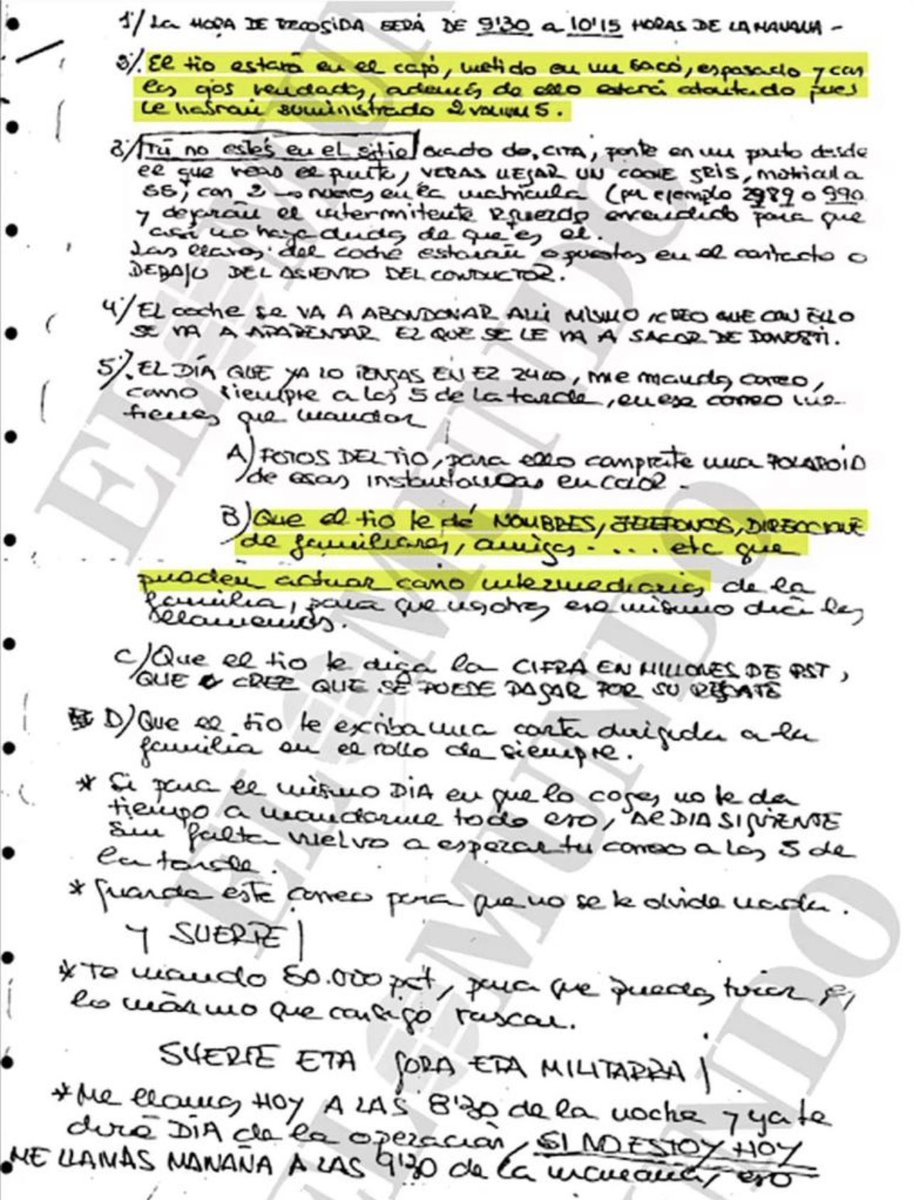 1º/ La HORA DE RECOGIDA SERÁ DE 9'30 a 10'15 HORAS DE LA MAÑANA -
2º/. El tio estará en el capó, metido en un saco, esposado y con
los ojos vendados, además de ello estará atontado pues
le habrán suministrado 2 valium 5.
3º/ Tú no estés en el sitio exacto de CITA, ponte en un punto desde
el que veas el punto, VERAS LLEGAR UN COCHE GRIS, matricula
SS, con 2 nueves en la matrícula (por ejemplo 2989 o 990
y dejarán el intermitente izquierdo encendido para que
así no haya duda de que es el.
Las llaves del coche estarán o puestas en el contacto o
DEBAJO DEL ASIENTO DEL CONDUCTOR.
4º/ EL coche SE VA A ABONDONAR ALLI MISMO, CREO QUE CON ELLO
SE VA A APARENTAR EL QUE SE LE VA A SACAR DE DONOSTI.
5º/. EL DÍA QUE YA LO TENGAS EN EL ZULO, me mandas correo,
como siempre a las 5 de la tarde, en ese correo me
tienes que mandar
A) FOTOS DEL TIO, para ello comprate una POLAROID
de esas instantaneas en color -
B) Que el tio te dé NOMBRES, TELEFONOS, DIRECCIONE
de familiares, amigos - .... etc que
pueden actuar como intermediarios de la
familia, para que nosotros ese mismo día les
llamemos.
C) Que el tio te diga la CIFRA EN MILLONES DE PST,
QUE CREE QUE SE PUEDE PAGAR POR SU RESCATE
D) Que el tio te escriba una carta dirigida a la
familia en el rollo de siempre.
* Si para el mismo DIA en que lo coges no te da
tiempo a mandarme todo eso, AL DIA SIGIENTE
sin falta vuelvo a esperar tu correo a las 5 de
la tarde.
* Guarda este correo para que no se te olvide nada.
Y SUERTE!
* Te mando 60.000 pst, para que puedas tirar es
lo máximo que consigo rascar.
SUERTE ETA GORA ETA MILITARRA!
* Me llamas HOY A LAS 8'30 de la noche y ya te
diré DÍA de la operación, SI NO ESTOY HOY
ME LLAMAS MAÑANA A LAS 9'30 de la mañana, eso
EL MUNDO
EL MUNDO
EL MUNDO